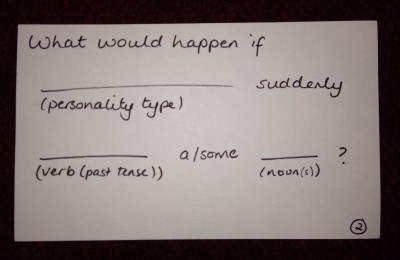 What would happen if
____________ suddenly
(personality type)
________ a/some _____ ?
(verb (past tense)) (noun(s))
2